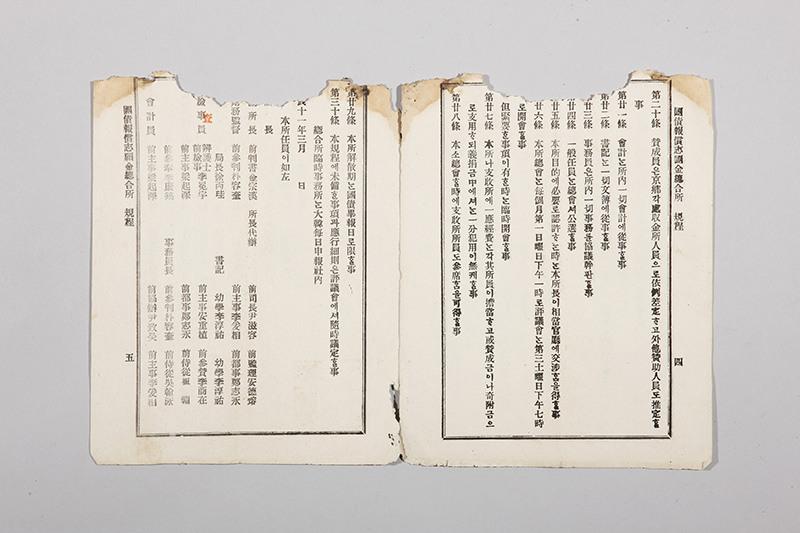 國債報償志願金總合所 規程 四
第二十條 贊成員은京鄉各處收金所人員으로依例差定ᄒᆞ고外他贊助人員도推定ᄒᆞᆯ
事
第廿一條 會計ᄂᆞᆫ所內一切會計에從事ᄒᆞᆯ事
第廿二條 書記ᄂᆞᆫ一切文簿에從事ᄒᆞᆯ事
廿三條 事務員은所內一切事務ᄅᆞᆯ協議幹辦ᄒᆞᆯ事
廿四條 一般任員은總會에셔公選ᄒᆞᆯ事
廿五條 本所目的에必要로認許ᄒᆞᆯ時ᄂᆞᆫ本所長이相當官廳에交涉ᄒᆞᆷ을得ᄒᆞᆯ事
廿六條 本所總會ᄂᆞᆫ每個月第一日曜日下午一時로評議會ᄂᆞᆫ第三土曜日下午七時
로開會ᄒᆞᆯ事
但緊要ᄒᆞᆫ事項이有ᄒᆞᆯ時ᄂᆞᆫ臨時開會ᄒᆞᆯ事
第廿七條 本所나支收所에一應經費ᄂᆞᆫ各其所員이擔當ᄒᆞ고或贊成金이나寄附金으
로支用ᄒᆞ되義捐金中에셔ᄂᆞᆫ一分犯用이無케ᄒᆞᆯ事
第廿八條 本所總會ᄒᆞᆯ時에支收所所員도參席ᄒᆞᆷ을可得ᄒᆞᆯ事
第廿九條 本所解散期ᄂᆞᆫ國債畢報日로限ᄒᆞᆯ事
第三十條 本規程에未備ᄒᆞᆫ事項과應行細則은評議會에셔隨時議定ᄒᆞᆯ事
總合所臨時事務所ᄂᆞᆫ大韓每日申報社內
十一年三月 日
本所任員이如左
長
所長 前判書金宗漢 所長代辦 前司長尹滋容 前監理安德瑢
務監督 前參判朴容奎 前主事李愛相 前都事鄭志永
局長徐丙珪 書記 幼學李淳祐 幼學李淳祐
檢事員 辯護士李冕宇 前主事安重植 前參贊李商在
前主事梁起鐸 前都事鄭志永 前侍從崔
前參奉李康鎬 事務員長 前參判朴容奎 前侍從吳翰泳
會計員 前主事梁起鐸 前協辦尹致昊 前主事李愛相
國債報償志願金總合所 規程 五